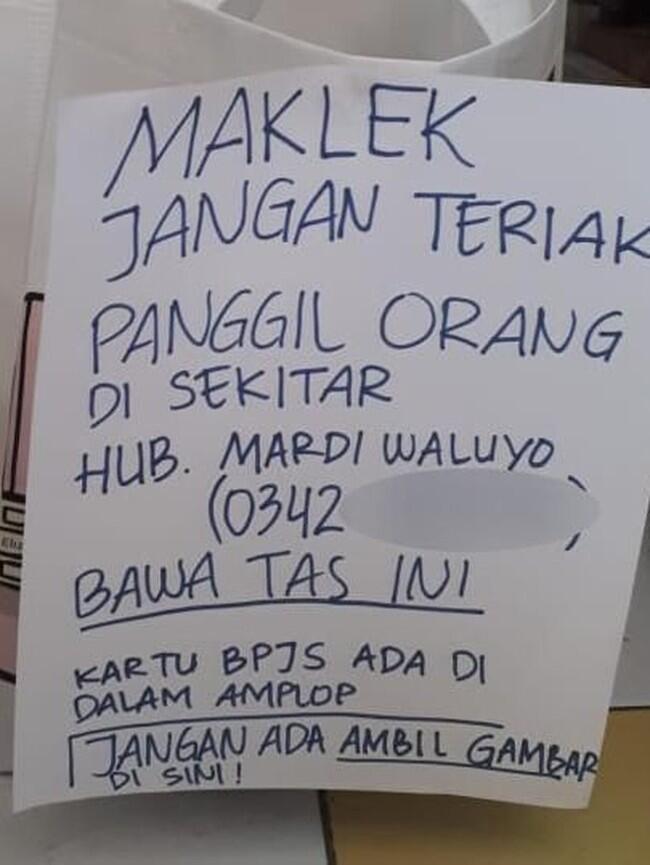 MAKLEK
JANGAN TERIAK
PANGGIL ORANG
DI SEKITAR
HUB. MARDI WALUYO
(0342 )
BAWA TAS INI
KARTU BPJS ADA DI
DALAM AMPLOP
JANGAN ADA AMBIL GAMBAR
DI SINI!